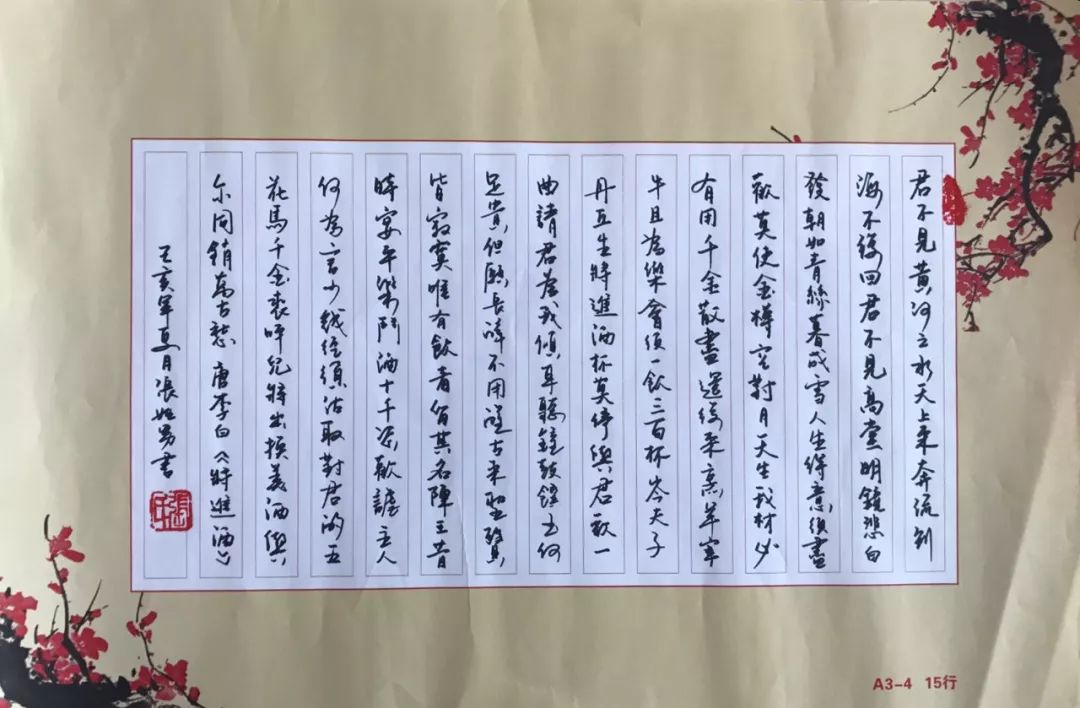 君不見黃河之水天上來奔流到
海不復回君不見高堂明鏡悲白
發朝如青絲暮成雪人生得意須盡
歡莫使金樽空對月天生我材必
有用千金散盡還復來烹羊宰
牛且為樂會須一飲三百杯岑夫子
丹丘生將進酒杯莫停與君歌一
曲請君為我傾耳聽鐘鼓饌玉何
足貴但願長醉不用醒古來聖賢
皆寂寞唯有飲者留其名陳王昔
時宴平樂鬥酒十千恣歡謔主人
何為言少錢徑須沽取對君酌五
花馬千金裘呼兒將出換美酒與
尔同銷萬古愁 唐李白《將進酒》
亥年夏月張書
A3-4 15行